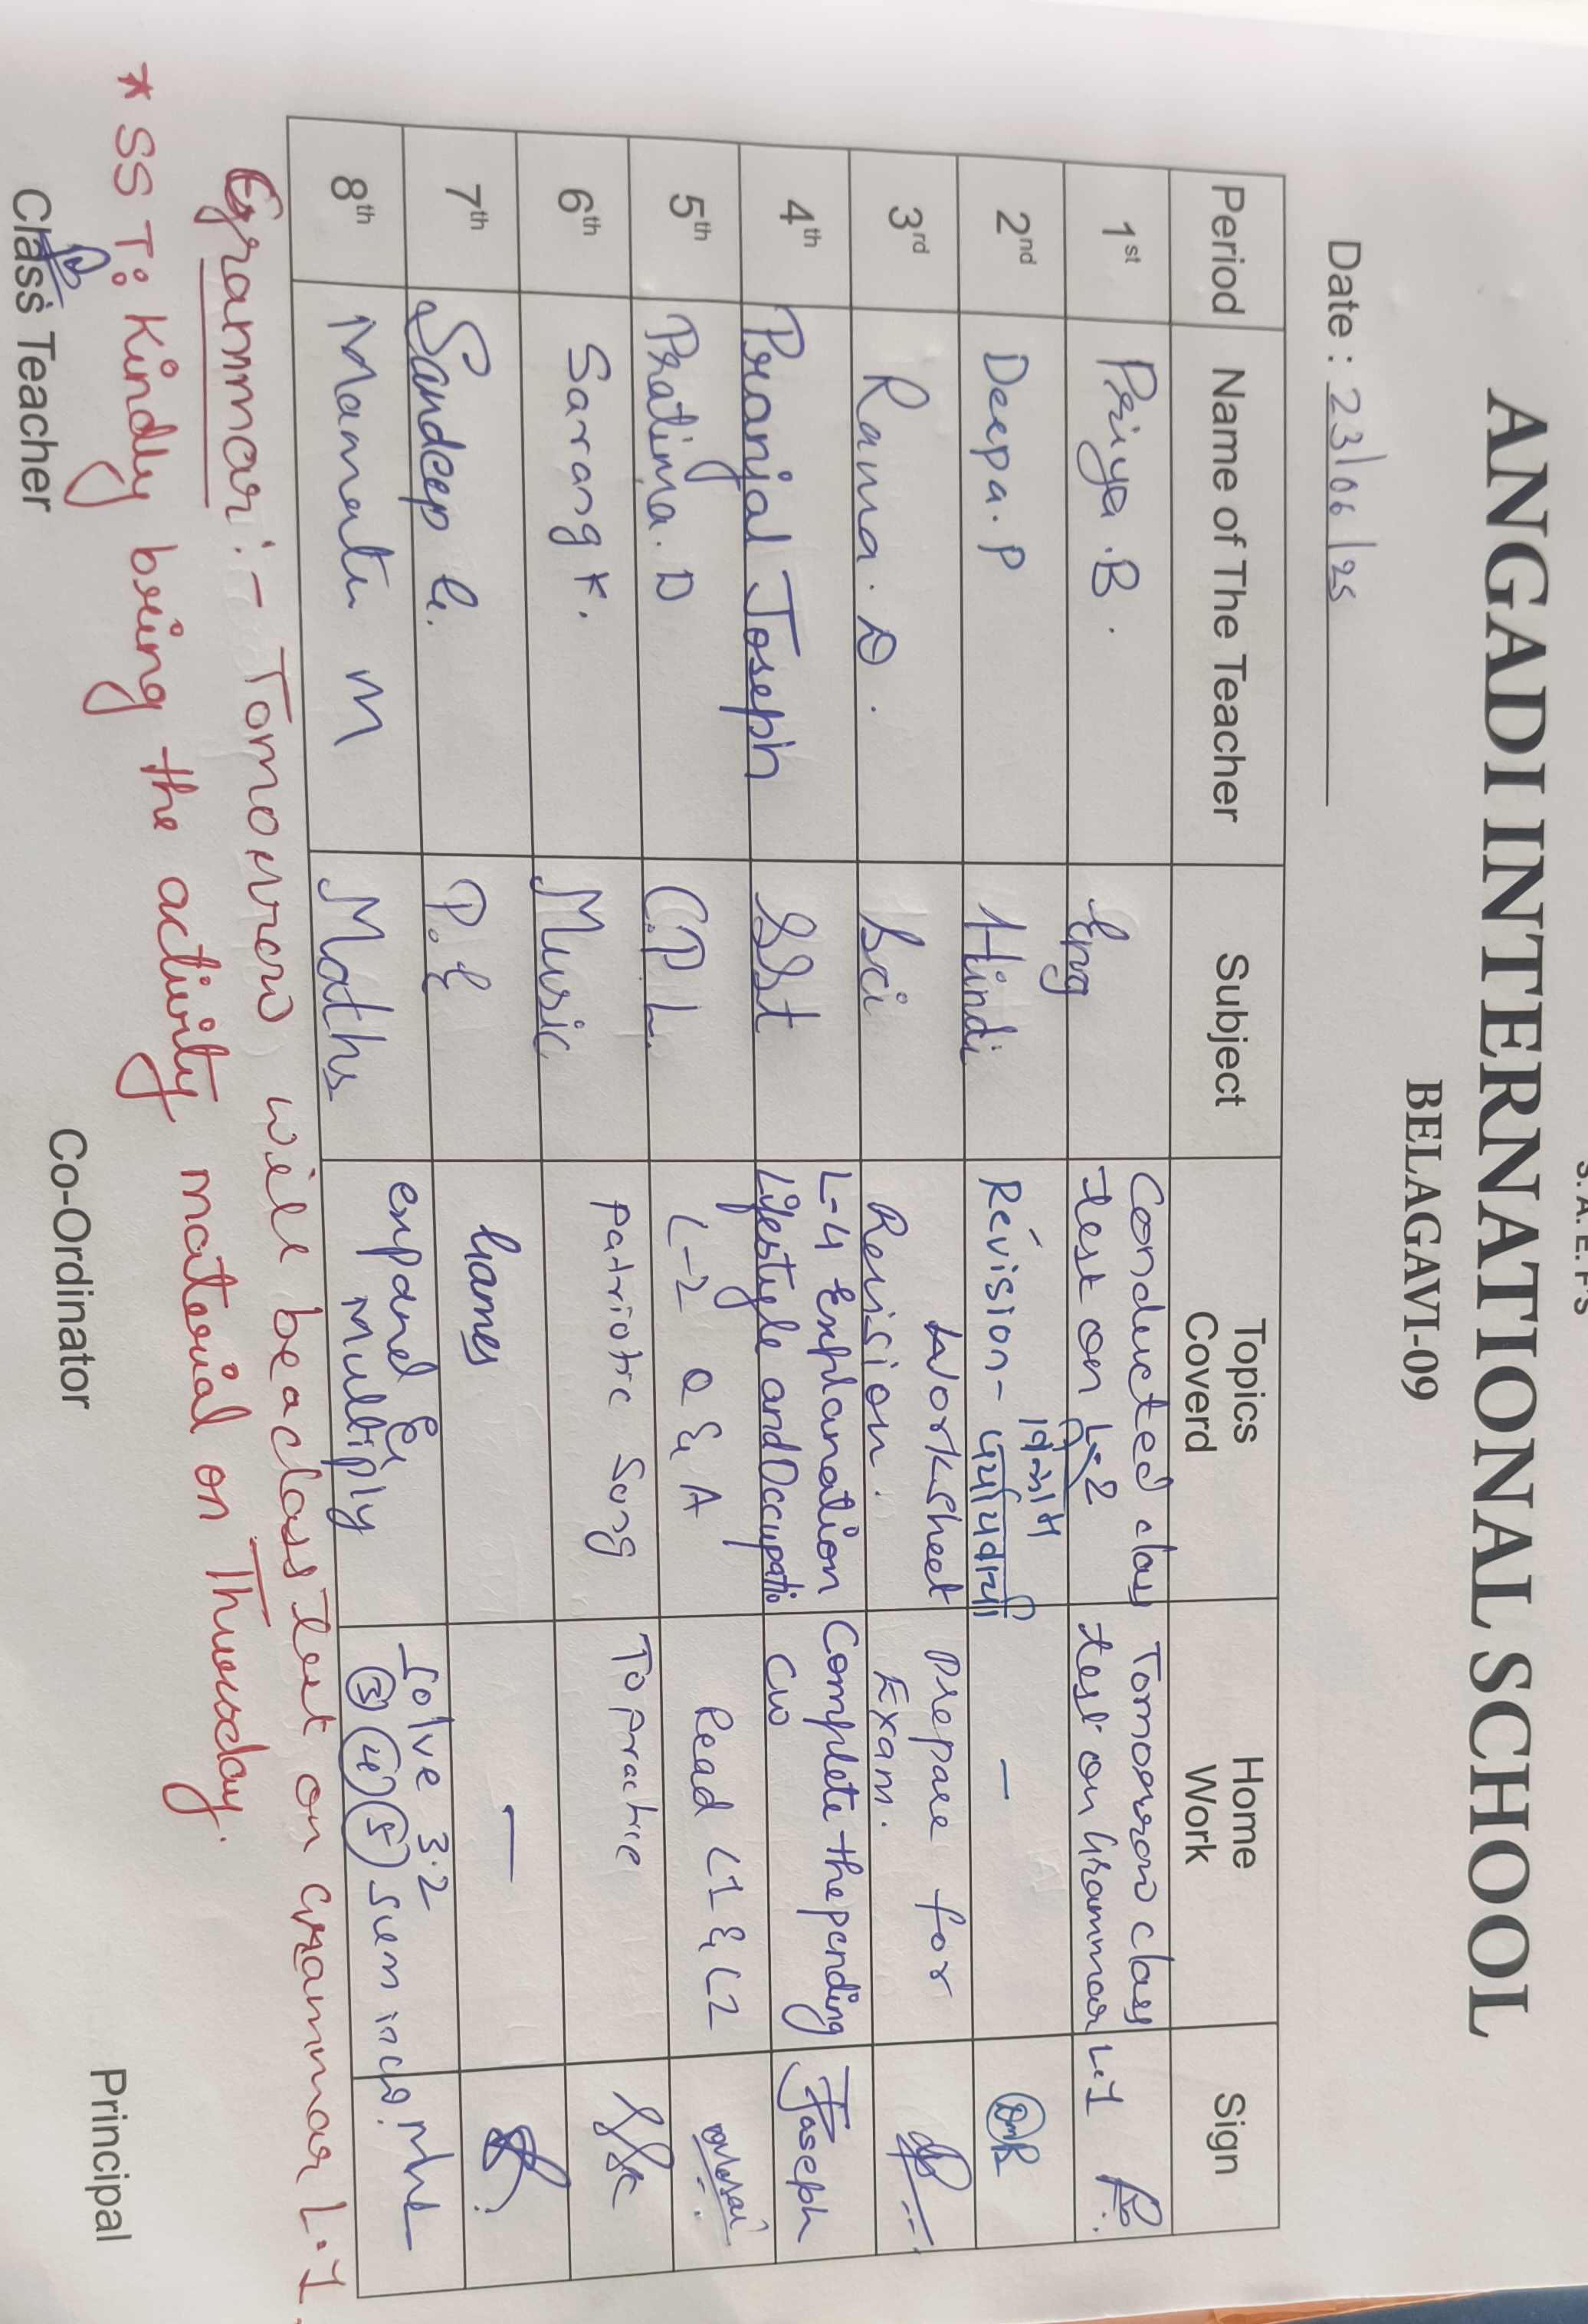 S. A. E. F'S
ANGADI INTERNATIONAL SCHOOL
BELAGAVI-09
Date : 23/06/25
Period Name of The Teacher Subject Topics Coverd Home Work Sign
1st Priya .B. Eng Conducted class test on L.2 Tomorrow class test on Grammar L.1
2nd Deepa.P Hindi Revision- विलोम पर्यायवाची –
3rd Rama.D. Sci Worksheet Revision. Prepare for Exam.
4th Pranjal Joseph SSt L-4 Explanation Lifestyle and Occupatio Complete the pending CW Joseph
5th Pratima.D C.P.L. L-2 Q & A Read L1 & L2
6th Sarang K. Music Patriotic Song To Practice
7th Sandeep G. P.E Games —
8th Mamata M Maths expand & Multiply Solve 3.2 3 4 5 sum in CW.
Grammar :- Tomorrow will be a class test on Grammar L.1.
* SST: Kindly bring the activity material on Thursday.
Class Teacher Co-Ordinator Principal